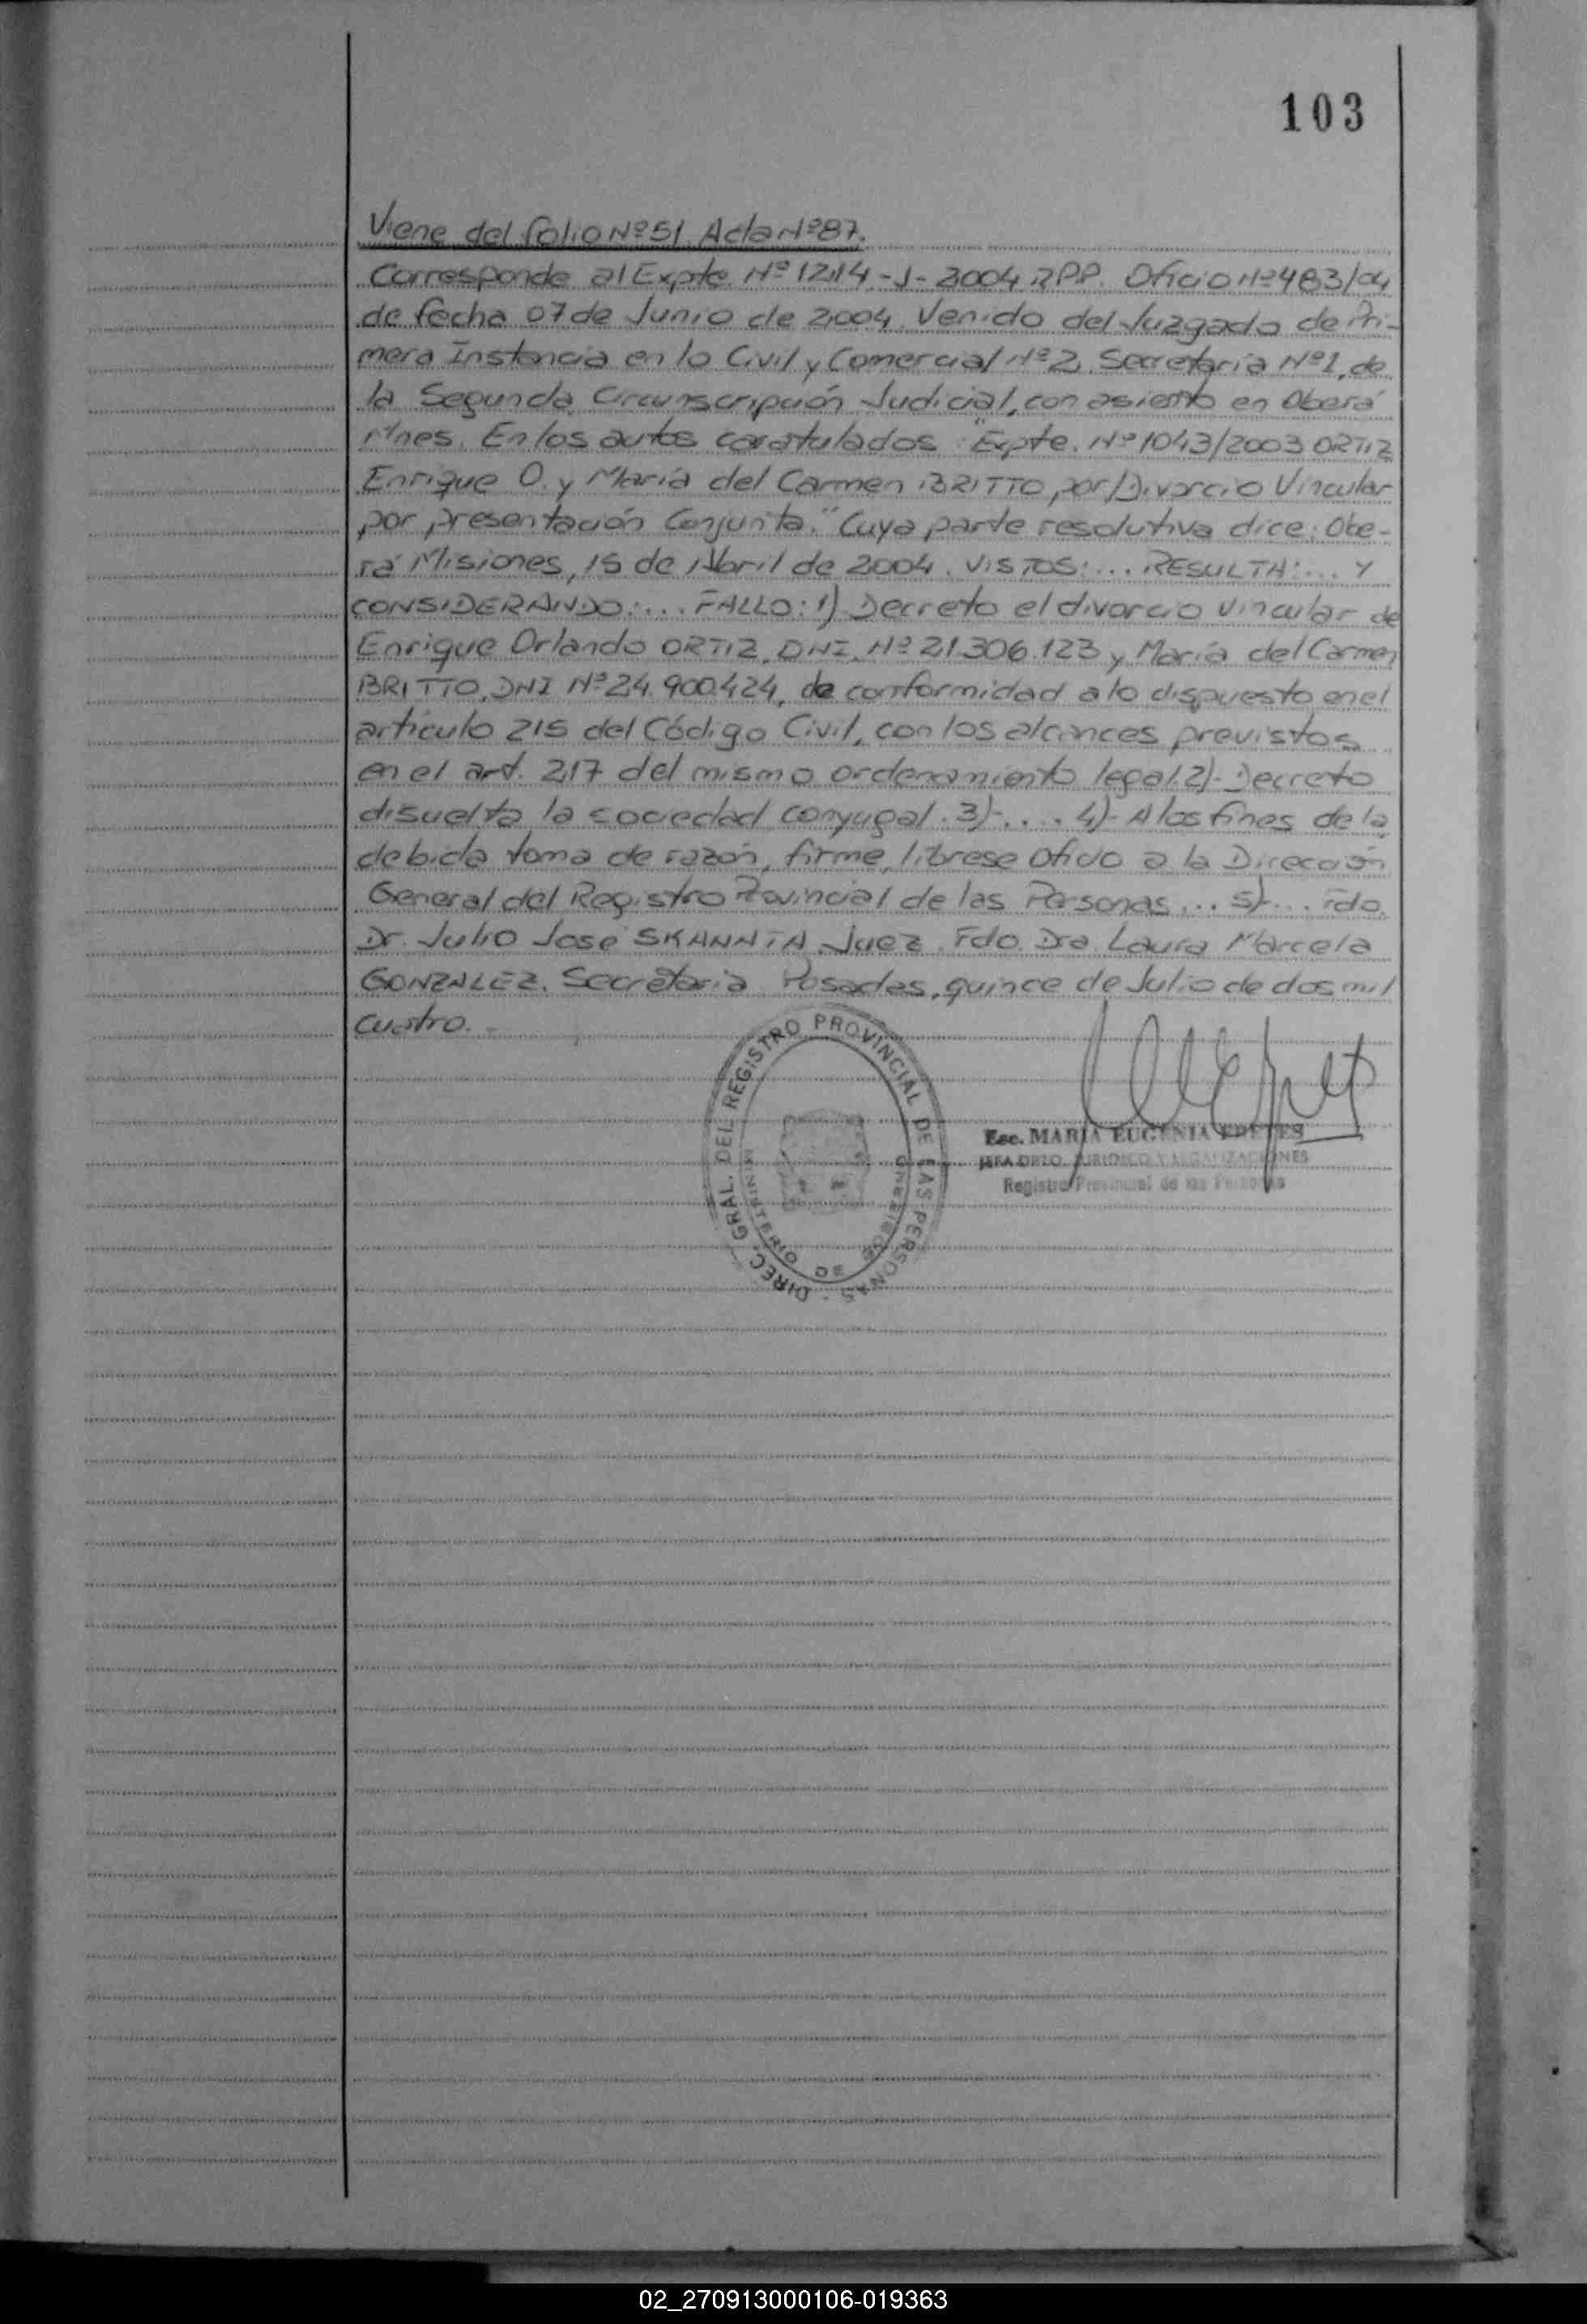 103
Viene del folio Nº 51 Acta Nº 87.
Corresponde al Expte. Nº 1214-J-2004 RPP. Oficio Nº 483/04
de fecha 07 de Junio de 2004. Venido del Juzgado de Pri-
mera Instancia en lo Civil y Comercial Nº 2, Secretaría Nº 1, de
la Segunda Circunscripción Judicial, con asiento en Oberá
Mnes. En los autos caratulados "Expte. Nº 1043/2003 ORTIZ
Enrique O. y María del Carmen BRITTO, por/Divorcio Vincular
por presentación Conjunta." Cuya parte resolutiva dice: Obe-
rá Misiones, 15 de Abril de 2004. VISTOS:... RESULTA:... Y
CONSIDERANDO:... FALLO: 1) Decreto el divorcio vincular de
Enrique Orlando ORTIZ, DNI. Nº 21.306.123 y María del Carmen
BRITTO, DNI Nº 24.900.424, de conformidad a lo dispuesto en el
artículo 215 del Código Civil, con los alcances previstos
en el art. 217 del mismo ordenamiento legal. 2)- Decreto
disuelta la sociedad conyugal. 3)-.... 4)- A los fines de la
debida toma de razón, firme, líbrese oficio a la Dirección
General del Registro Provincial de las Personas... 5)-... Fdo.
Dr. Julio José SKANATA Juez. Fdo. Dra. Laura Marcela
GONZALEZ. Secretaria. Posadas, quince de Julio de dos mil
cuatro.-
DIREC. GRAL. DEL REGISTRO PROVINCIAL DE LAS PERSONAS -
MINISTERIO DE GOBIERNO
Esc. MARIA EUGENIA FRETES
JEFA DPTO. JURIDICO Y LEGALIZACIONES
Registro Provincial de las Personas
02_270913000106-019363